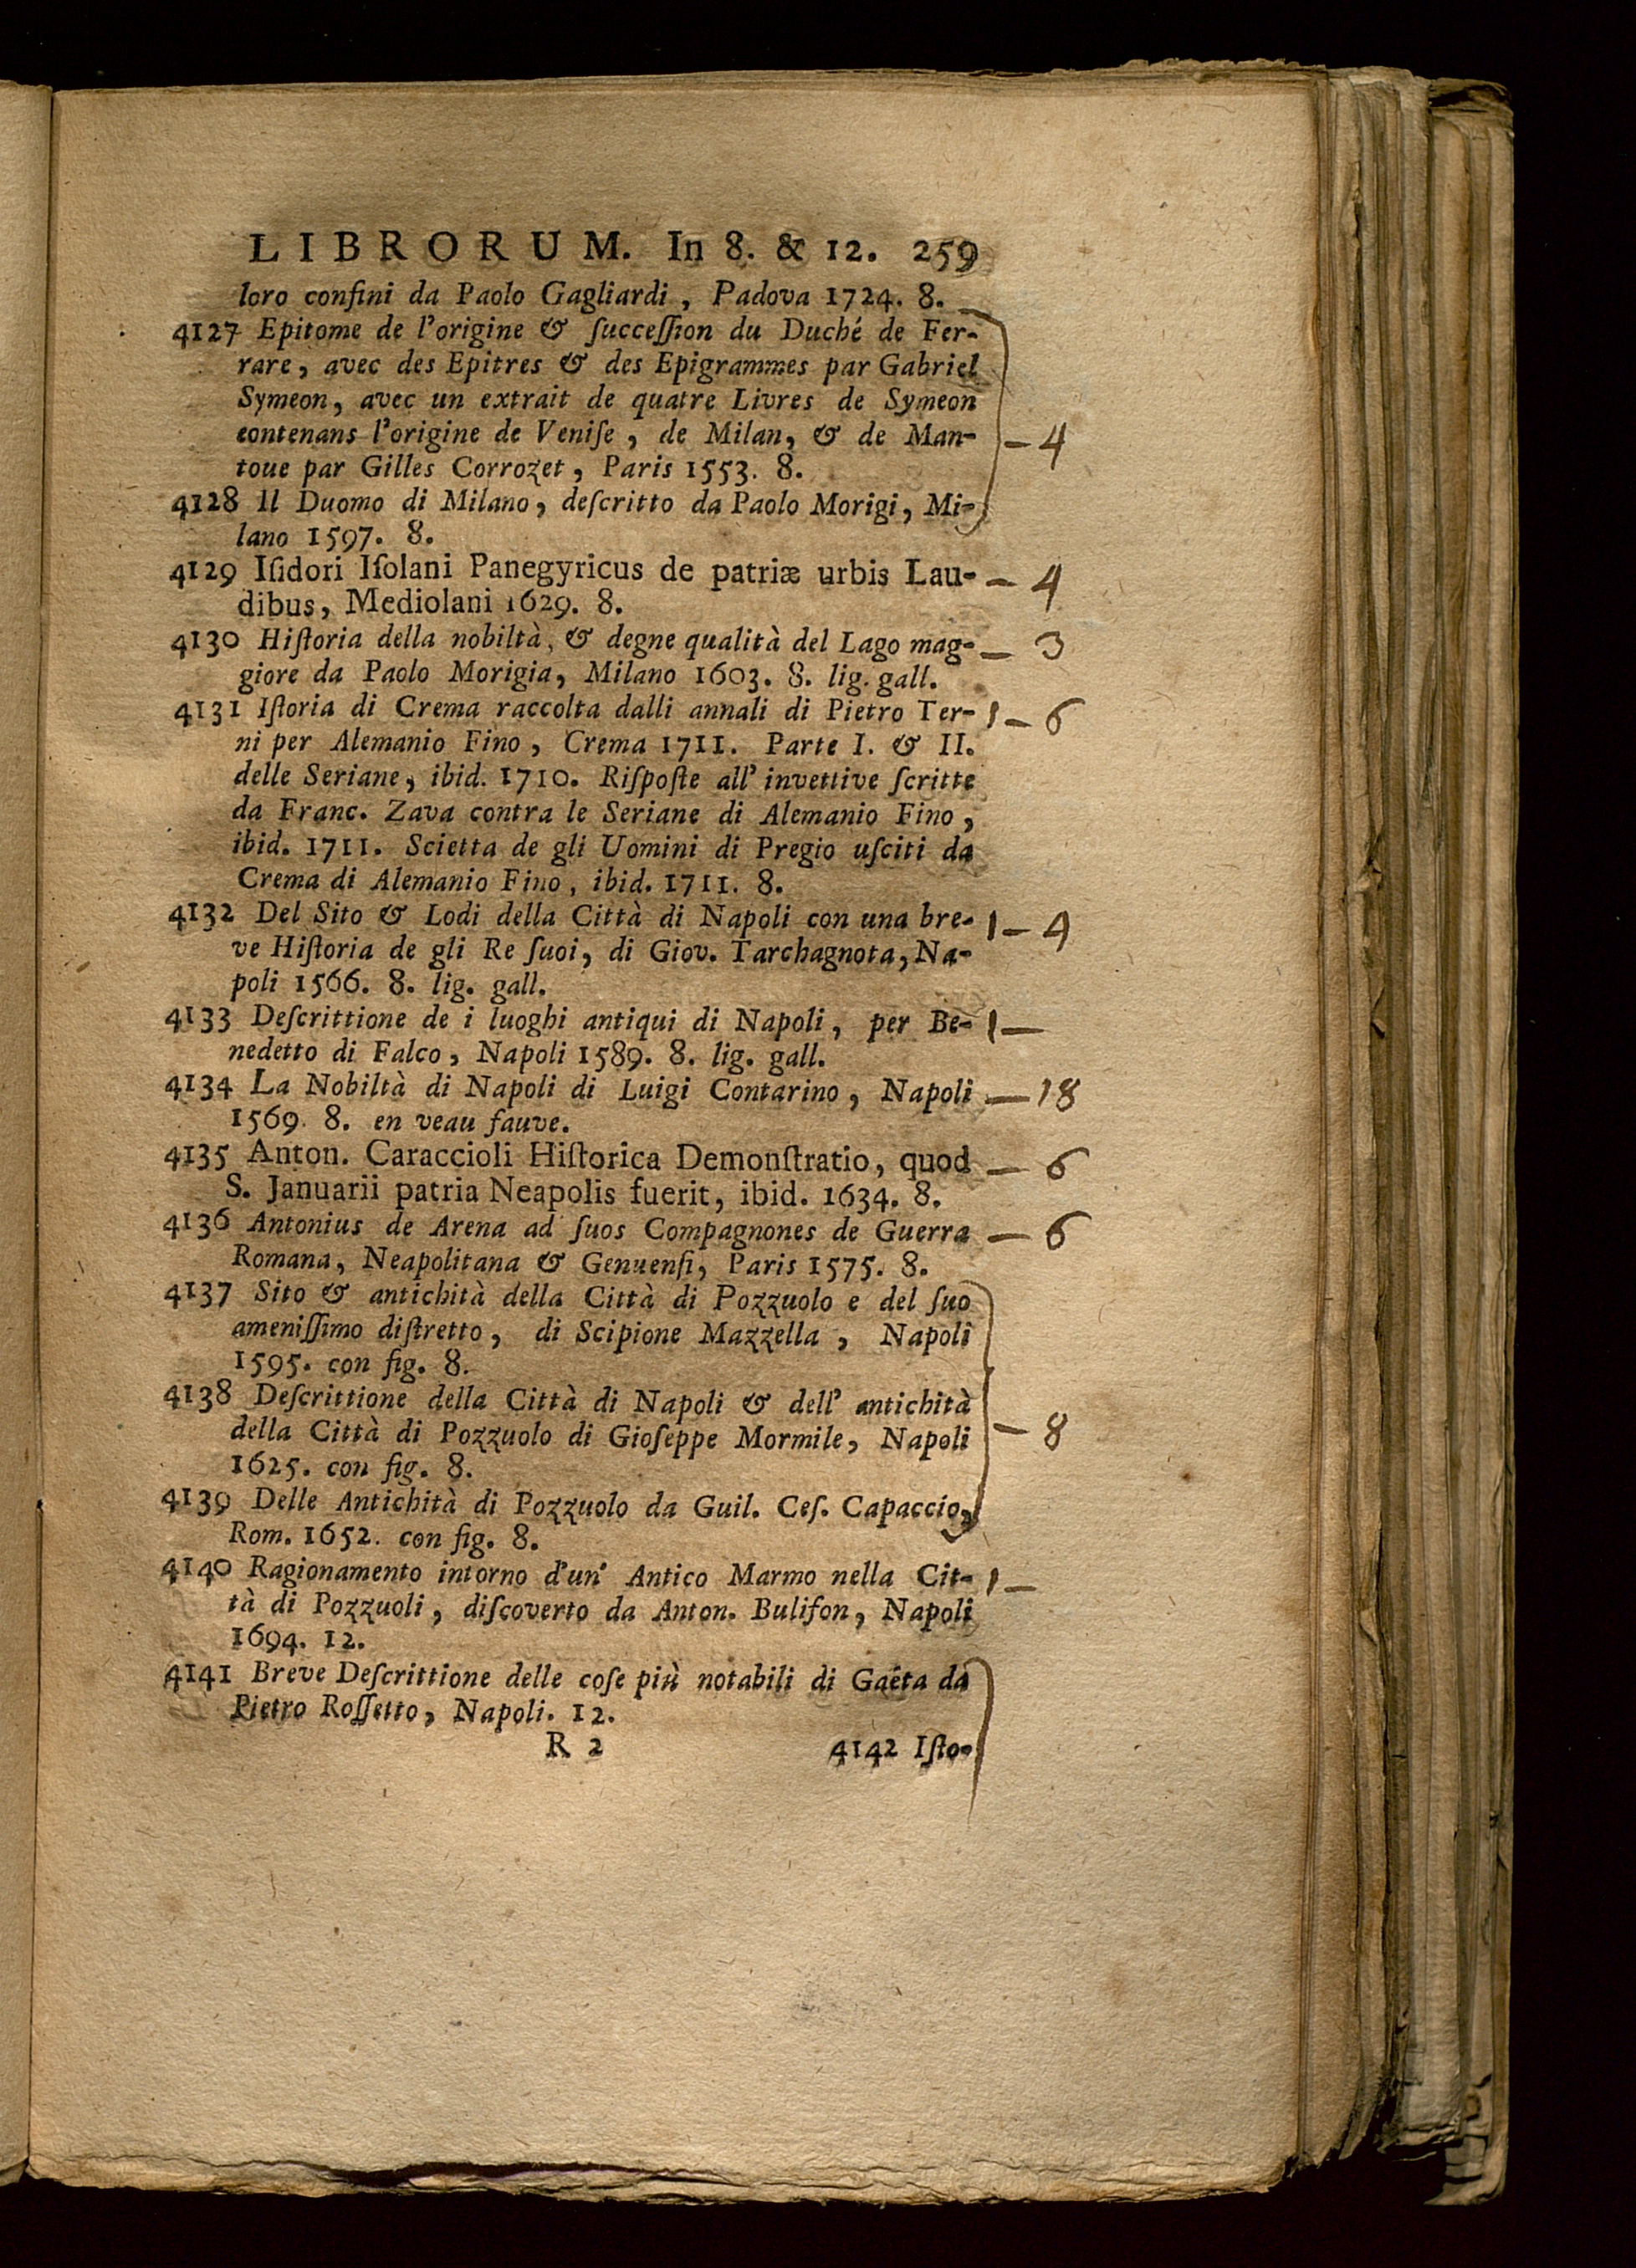 LIBRORUM. In 8. & 12. 259
loro confini da Paolo Gagliardi, Padova 1724. 8.
4127 Epitome de l'origine & ſucceſſion du Duché de Fer-
rare, avec des Epitres & des Epigrammes par Gabriel
Symeon, avec un extrait de quatre Livres de Symeon
contenans l'origine de Veniſe, de Milan, & de Man- — 4
toue par Gilles Corrozet, Paris 1553. 8.
4128 Il Duomo di Milano, deſcritto da Paolo Morigi, Mi-
lano 1597. 8.
4129 Iſidori Iſolani Panegyricus de patriæ urbis Lau- — 4
dibus, Mediolani 1629. 8.
4130 Hiſtoria della nobiltà, & degne qualità del Lago mag- — 3
giore da Paolo Morigia, Milano 1603. 8. lig. gall.
4131 Iſtoria di Crema raccolta dalli annali di Pietro Ter- 1 — 6
ni per Alemanio Fino, Crema 1711. Parte I. & II.
delle Seriane, ibid. 1710. Riſpoſte all' invettive ſcritte
da Franc. Zava contra le Seriane di Alemanio Fino,
ibid. 1711. Scietta de gli Uomini di Pregio uſciti da
Crema di Alemanio Fino, ibid. 1711. 8.
4132 Del Sito & Lodi della Città di Napoli con una bre- 1 — 4
ve Hiſtoria de gli Re ſuoi, di Giov. Tarchagnota, Na-
poli 1566. 8. lig. gall.
4133 Deſcrittione de i luoghi antiqui di Napoli, per Be- 1 —
nedetto di Falco, Napoli 1589. 8. lig. gall.
4134 La Nobiltà di Napoli di Luigi Contarino, Napoli — 18
1569. 8. en veau fauve.
4135 Anton. Caraccioli Hiſtorica Demonſtratio, quod — 6
S. Januarii patria Neapolis fuerit, ibid. 1634. 8.
4136 Antonius de Arena ad ſuos Compagnones de Guerra — 6
Romana, Neapolitana & Genuenſi, Paris 1575. 8.
4137 Sito & antichità della Città di Pozzuolo e del ſuo
ameniſſimo diſtretto, di Scipione Mazzella, Napoli
1595. con fig. 8.
4138 Deſcrittione della Città di Napoli & dell' antichità
della Città di Pozzuolo di Gioſeppe Mormile, Napoli — 8
1625. con fig. 8.
4139 Delle Antichità di Pozzuolo da Guil. Ceſ. Capaccio,
Rom. 1652. con fig. 8.
4140 Ragionamento intorno d'un' Antico Marmo nella Cit- 1 —
tà di Pozzuoli, diſcoverto da Anton. Bulifon, Napoli
1694. 12.
4141 Breve Deſcrittione delle coſe più notabili di Gaéta da
Pietro Roſſetto, Napoli. 12.
R 2 4142 Iſto-